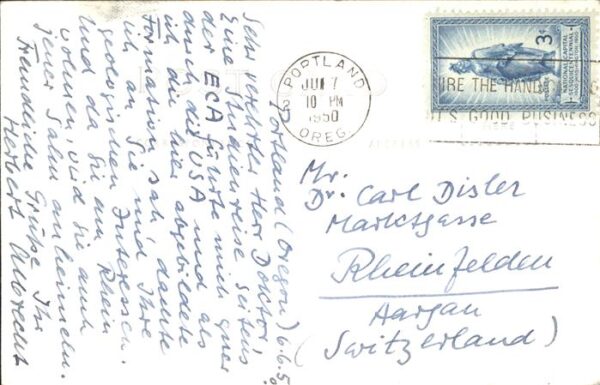 Portland (Oregon) 6.6.50
Sehr verehrter Herr Doktor,
Eine Studienreise seitens
der ECA führte mich quer
durch die USA und als
ich die hier abgebildete
Formation sah, dachte
ich an Sie und Ihre
geologischen Interessen.
Und da Sie am Rhein
wohnen, wird Sie auch
jener Salm anheimeln.
Freundliche Grüsse Ihr
Herbert
PORTLAND
JUN 7
10 PM
1950
OREG.
2
IRE THE HANDI
IT'S GOOD BUSINESS
3¢
NATIONAL CAPITAL
SESQUICENTENNIAL
Mr.
Dr. Carl Disler
Marktgasse
Rheinfelden
Aargau
(Switzerland)